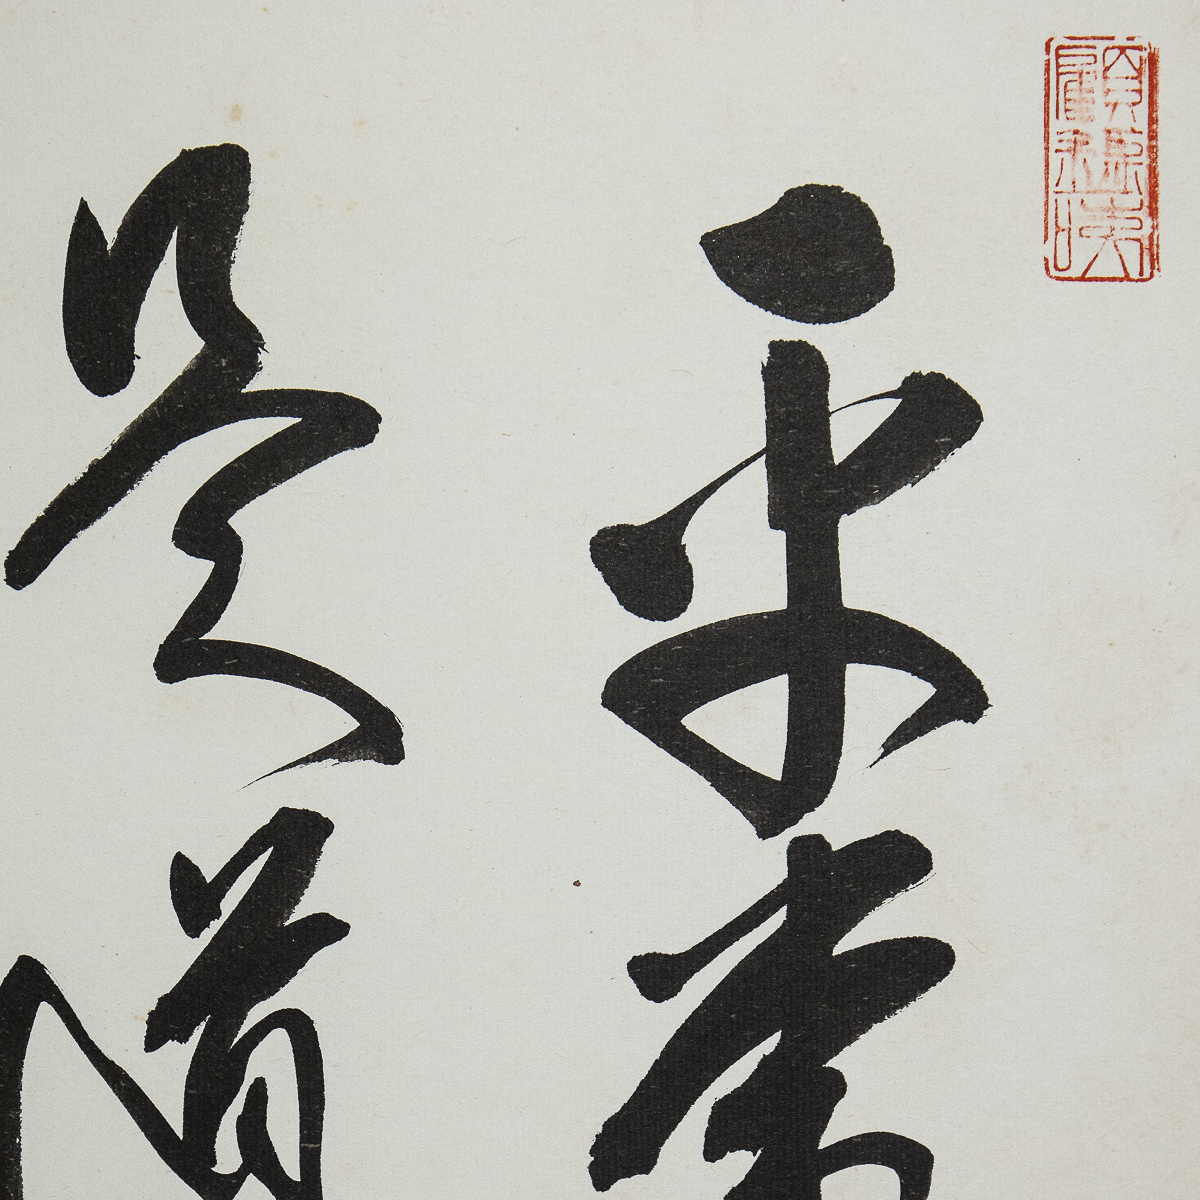 平常
是道